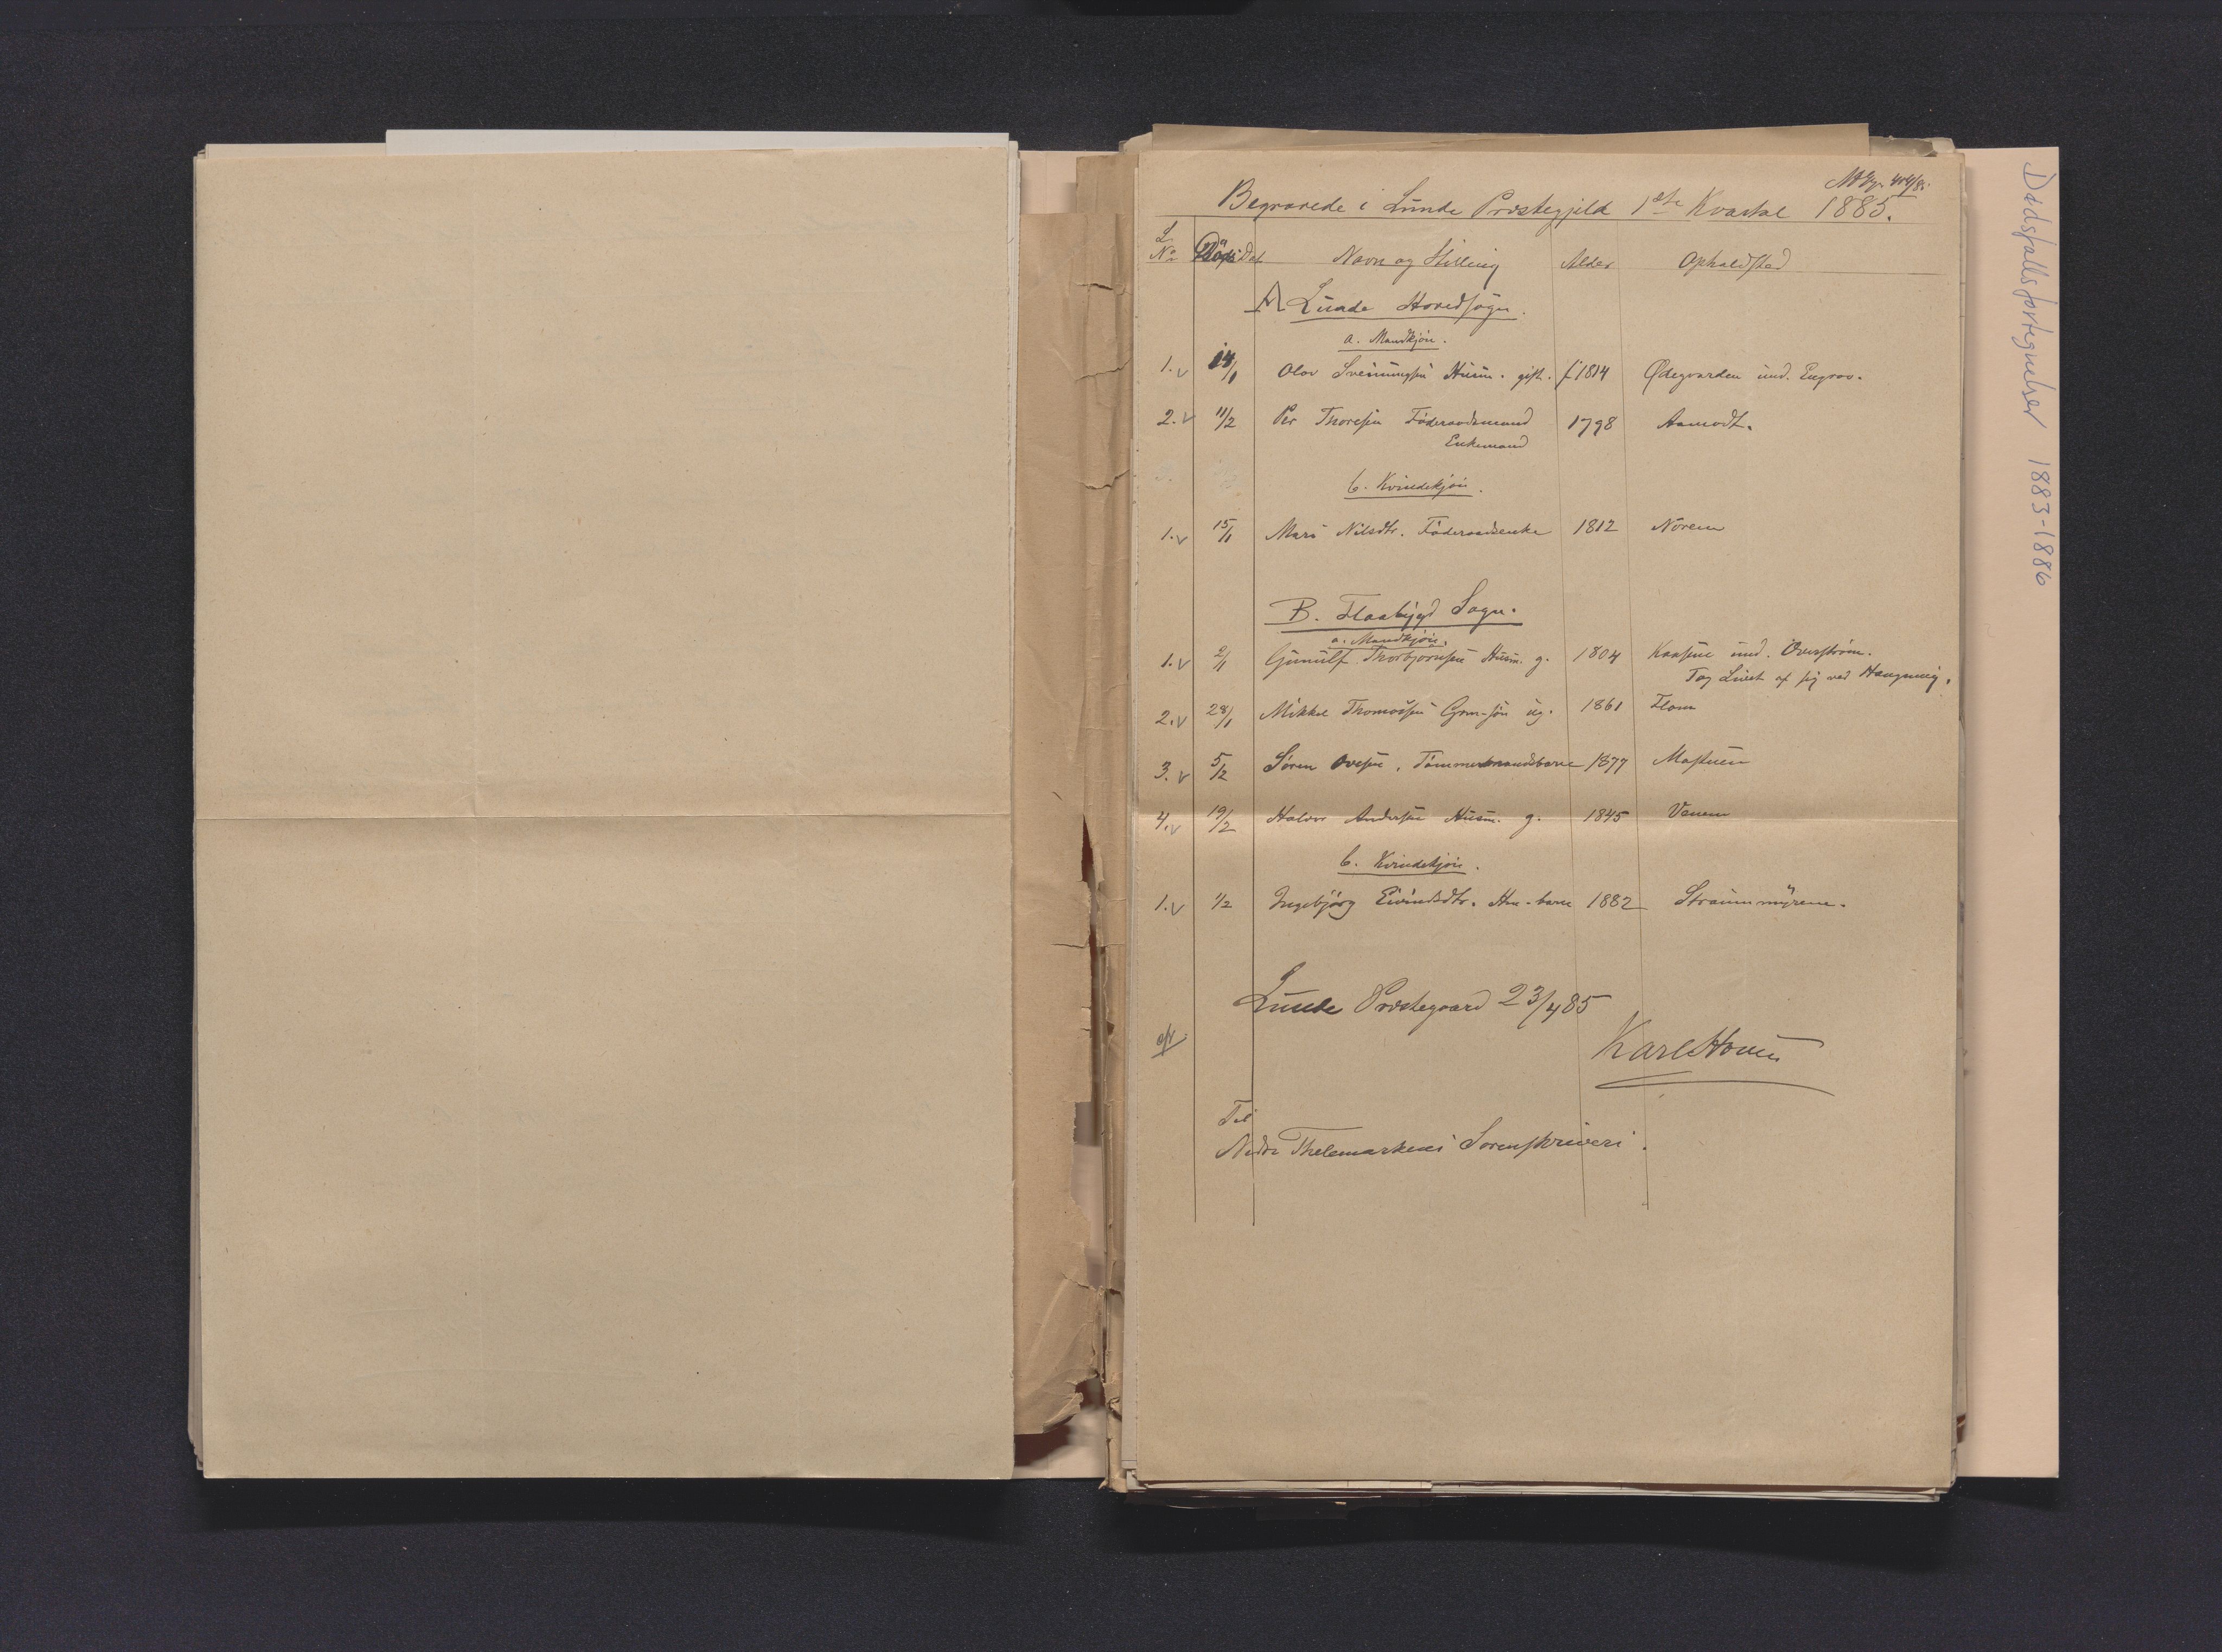 Begravede i Lunde Præstegjeld 1ste Kvartal 1885.
L. No Døds Dat Navn og Stilling Alder Opholdsted
A Lunde Hovedsogn.
a. Mandkjøn.
1. 14/1 Olav Sveinungsen Husm. gift. f 1814 Ødegaarden und. Engrav.
2. 11/2 Per Thoresen Føderaadsmand 1798 Aamodt.
Enkemand
b. Kvindekjøn.
1. 15/1 Mari Nilsdtr. Føderaadsenke 1812 Norem
B. Flaabygd Sogn.
a. Mandkjøn.
1. 2/1 Gunulf Thorbjørnsen Husm. g. 1804 Kaasene und. Øverstrøm.
Tog Livet af sig ved Hængning.
2. 28/1 Mikkel Thomassen Grm-søn ug. 1861 Flom
3. 5/2 Søren Ovesen, Tømmermandsbarn 1877 Mostuen
4. 19/2 Halvor Andersen Husm. g. 1845 Venem
b. Kvindekjøn.
1. 1/2 Ingebjørg Eivindsdtr. Hm-barn 1882 Straummyrene.
Lunde Præstegaard 23/4 85
Karl Homme
Til
Nedre Thelemarkens Sorenskriveri.
Dødsfallsfortegnelser 1883-1886